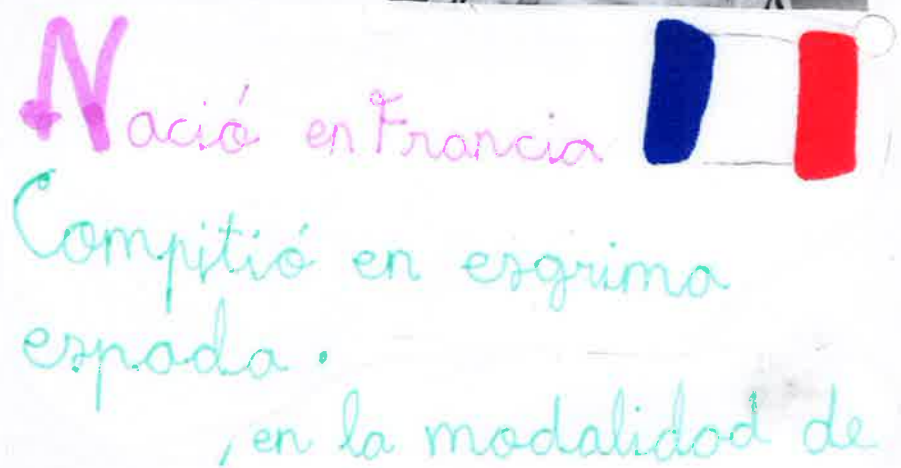 Nació en Francia
Compitió en esgrima
espada.
, en la modalidad de